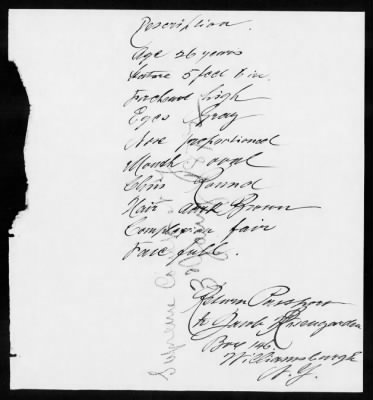 Description.
Age 26 years
Stature 5 feet 8 in.
Forehead high
Eyes Gray
Nose proportional
Mouth oval
Chin Round
Hair dark Brown
Complexion fair
Face full.
Return Passport
to Jacob Rosengarden
Box 146.
Williamsburgh
N.Y.
Supreme